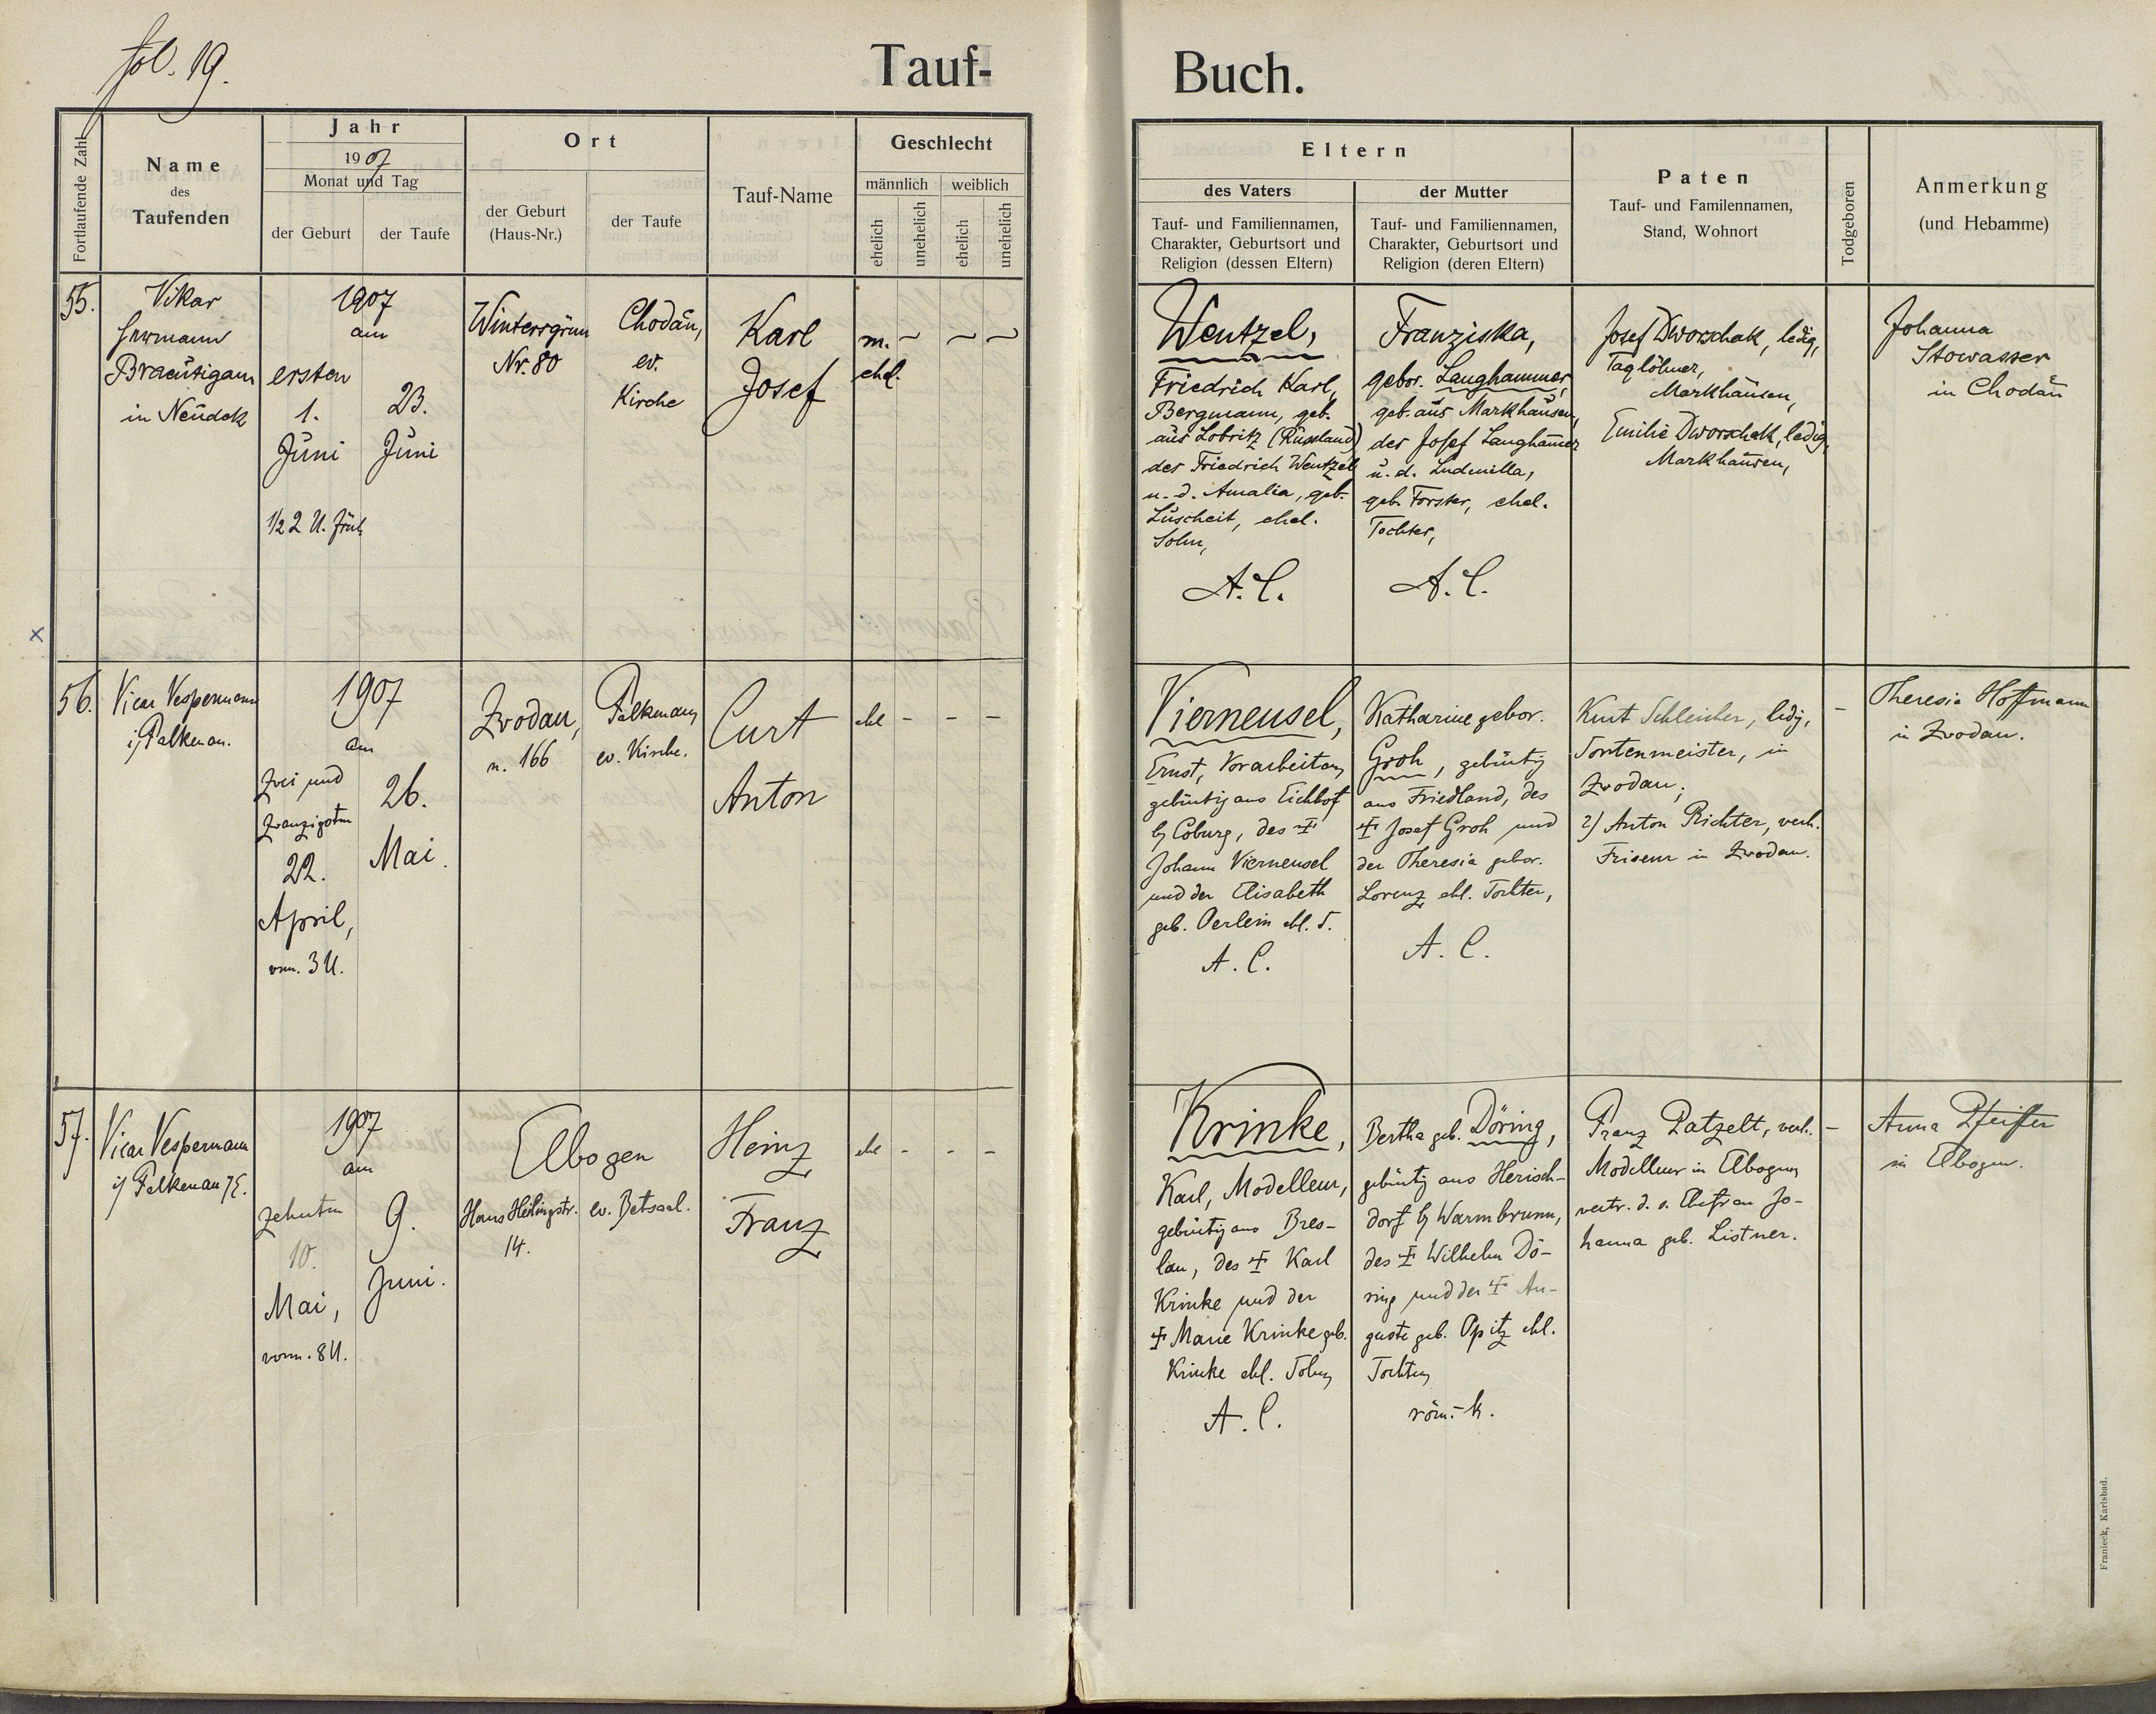 fol. 19.
Tauf-
Buch.
Fortlaufende Zahl
Name
des
Taufenden
Jahr
1907
Monat und Tag
der Geburt
der Taufe
Ort
der Geburt
(Haus-Nr.)
der Taufe
Tauf-Name
Geschlecht
männlich
weiblich
ehelich
unehelich
ehelich
unehelich
Eltern
des Vaters
Tauf- und Familiennamen,
Charakter, Geburtsort und
Religion (dessen Eltern)
der Mutter
Tauf- und Familiennamen,
Charakter, Geburtsort und
Religion (deren Eltern)
Paten
Tauf- und Familennamen,
Stand, Wohnort
Todgeboren
Anmerkung
(und Hebamme)
55.
Vikar
Hermann
Braeutigam
in Neudek
1907
am
ersten
1.
Juni
1/2 2 U. früh
23.
Juni
Wintersgrün
Nr. 80
Chodau,
ev.
Kirche
Karl
Josef
m. ~ ~ ~
ehel.
Wentzel,
Friedrich Karl,
Bergmann, geb.
aus Lobritz (Russland)
des Friedrich Wentzel
u. d. Amalia, geb.
Luscheit, ehel.
Sohn,
A. C.
Franziska,
gebor. Langhammer,
geb. aus Markhausen,
des Josef Langhamer
u. d. Ludmilla,
geb. Forster, ehel.
Tochter,
A. C.
Josef Dworschak, ledig,
Taglöhner,
Markhausen,
Emilie Dworschak, ledig,
Markhausen,
Johanna
Stowasser
in Chodau
x
56.
Vicar Vespermann
i/ Falkenau.
1907
am
Zwei und
zwanzigsten
22.
April,
vorm. 3 U.
26.
Mai.
Zwodau,
n. 166
Falkenau,
ev. Kirche.
Curt
Anton
ehl - - -
Vierneusel,
Ernst, Vorarbeiter,
gebürtig aus Eichhof
b/ Coburg, des †
Johann Vierneusel
und der Elisabeth
geb. Oerlein ehl. S.
A. C.
Katharine gebor.
Groh, gebürtig
aus Friedland, des
† Josef Groh und
der Theresia gebor.
Lorenz ehl. Tochter,
A. C.
Kurt Schleicher, ledig,
Sortenmeister, in
Zwodau;
2) Anton Richter, verh.
Friseur in Zwodau.
-
Theresia Hoffmann
in Zwodau.
57.
Vicar Vespermann
i/ Falkenau /E.
1907
am
zehnten
10.
Mai,
vorm. 8 U.
9.
Juni.
Elbogen
Hans Heilingstr.
14.
ev. Betsaal.
Heinz
Franz
ehl - - -
Krinke,
Karl, Modelleur,
gebürtig aus Bres-
lau, des † Karl
Krinke und der
† Marie Krinke geb.
Krinke ehl. Sohn,
A. C.
Bertha geb. Döring,
gebürtig aus Herisch-
dorf b/ Warmbrunn,
des † Wilhelm Dö-
ring und der † Au-
guste geb. Opitz ehl.
Tochter,
röm.-k.
Franz Patzelt, verh.
Modelleur in Elbogen,
vertr. d. s. Ehefrau Jo-
hanna geb. Listner.
-
Anna Pfeiffer
in Elbogen.
Franieck, Karlsbad.